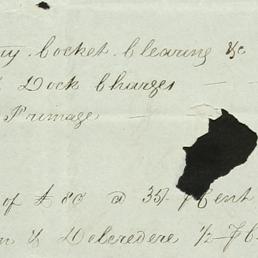 Cocket Clearing &c
Dock Charges —
Primage —
of £ 80 @ 35/- p Cent
& Delcredere ½ p C